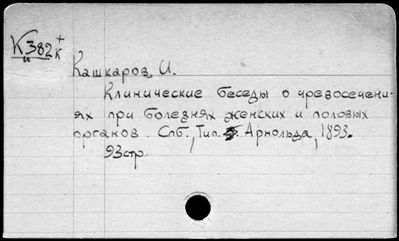 К382 +к
и
Кашкаров, И.
Клинические беседы о чревосечени-
ях при болезнях женских и половых
органов. Спб., Тип. Арнольда, 1893.
93стр.